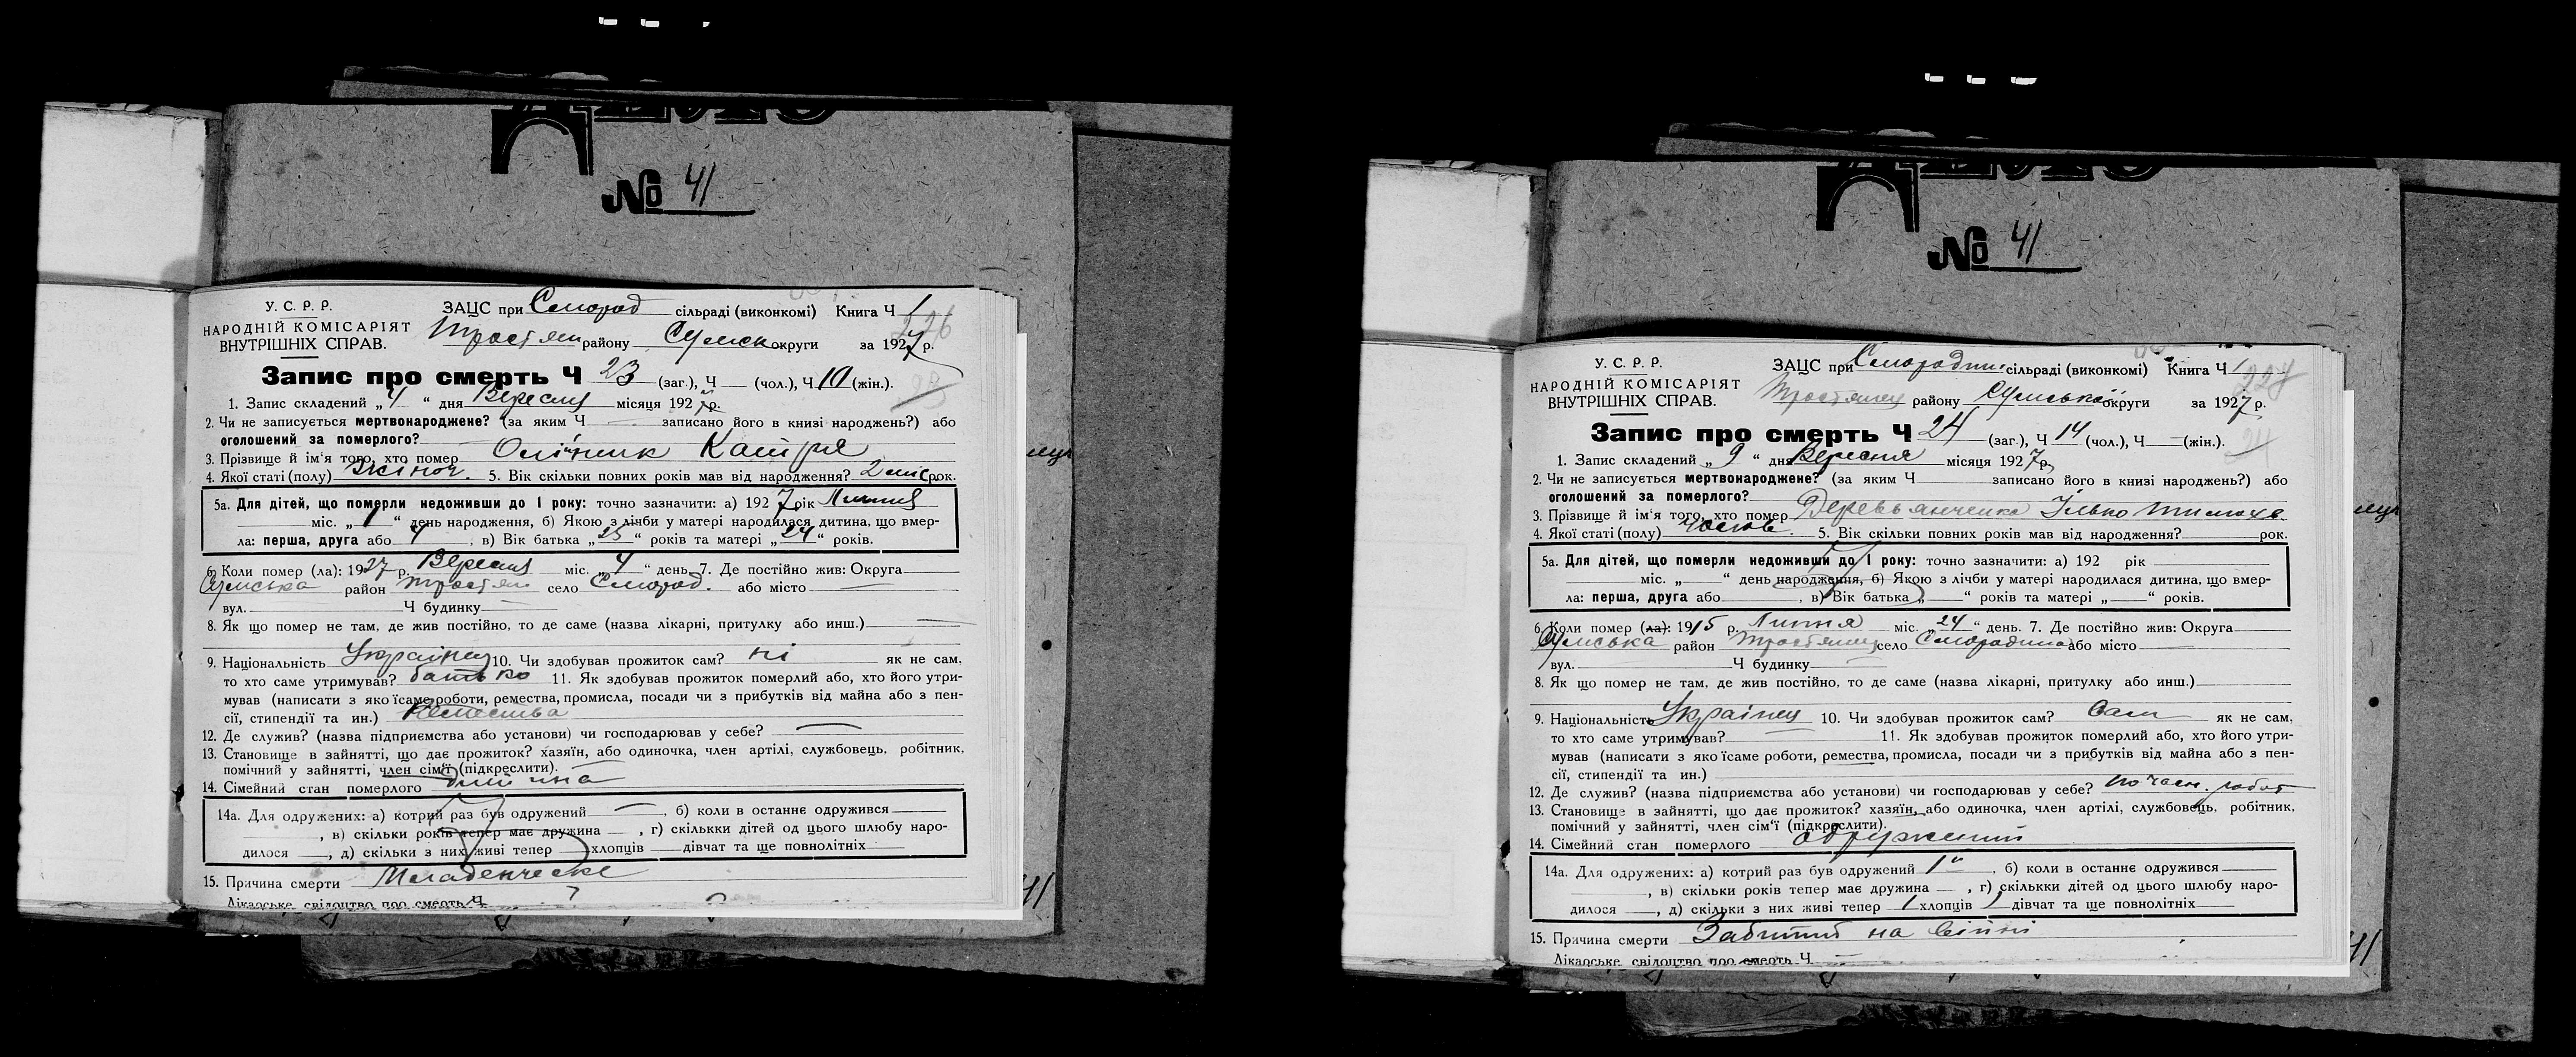 № 41
У. С. Р. Р.
НАРОДНІЙ КОМІСАРІЯТ
ВНУТРІШНІХ СПРАВ.
ЗАЦС при Смород сільраді (виконкомі) Книга Ч 1
226
Тростян району Сумск округи за 1927 р.
Запис про смерть Ч 23 (заг.), Ч — (чол.), Ч 10 (жін.).
23
1. Запис складений „ 4 “ дня Вересня місяця 1927 р.
2. Чи не записується мертвонароджене? (за яким Ч — записано його в книзі народжень?) або
оголошений за померлого? —
3. Прізвище й ім'я того, хто помер Олійник Катря
4. Якої статі (полу) Жіноч. 5. Вік скільки повних років мав від народження? 2 міс рок.
5а. Для дітей, що померли недоживши до 1 року: точно зазначити: а) 1927 рік Липня
міс. „ 1 “ день народження, б) Якою з лічби у матері народилася дитина, що вмер-
ла: перша, друга або 4 , в) Вік батька „ 25 “ років та матері „ 24 “ років.
6. Коли помер (ла): 1927 р. Вересня міс. „ 4 “ день. 7. Де постійно жив: Округа
Сумська район Тростян село Смород. або місто —
вул. Ч будинку —
8. Як що помер не там, де жив постійно, то де саме (назва лікарні, притулку або инш.) —
9. Національність Українец 10. Чи здобував прожиток сам? ні як не сам,
то хто саме утримував? батько 11. Як здобував прожиток померлий або, хто його утри-
мував (написати з якоїсаме роботи, ремества, промисла, посади чи з прибутків від майна або з пен-
сії, стипендії та ин.)
12. Де служив? (назва підприємства або установи) чи господарював у себе? —
13. Становище в зайнятті, що дає прожиток? хазяїн, або одиночка, член артілі, службовець, робітник,
помічний у зайнятті, член сім'ї (підкреслити).
14. Сімейний стан померлого дитина
14а. Для одружених: а) котрий раз був одружений — , б) коли в останнє одружився
, в) скільки років тепер має дружина — , г) скількки дітей од цього шлюбу наро-
дилося — , д) скільки з них живі тепер хлопців — дівчат та ще повнолітніх
15. Причина смерти Младенческе
Лікарське свідоцтво про смерть Ч.
№ 41
У. С. Р. Р.
НАРОДНІЙ КОМІСАРІЯТ
ВНУТРІШНІХ СПРАВ.
ЗАЦС при Смородин сільраді (виконкомі) Книга Ч 1
227
Тростянец району Сумської округи за 1927 р.
Запис про смерть Ч 24 (заг.), Ч 14 (чол.), Ч — (жін.).
24
1. Запис складений „ 9 “ дня Вересня місяця 1927 р.
2. Чи не записується мертвонароджене? (за яким Ч записано його в книзі народжень?) або
оголошений за померлого?
3. Прізвище й ім'я того, хто помер Деревьянченко Ілько Тимохв.
4. Якої статі (полу) Чолов. 5. Вік скільки повних років мав від народження? рок.
5а. Для дітей, що померли недоживши до 1 року: точно зазначити: а) 192 рік
міс. „ “ день народження, б) Якою з лічби у матері народилася дитина, що вмер-
ла: перша, друга або , в) Вік батька „ “ років та матері „ “ років.
6. Коли помер (ла): 1915 р. Липня міс. „ 24 “ день. 7. Де постійно жив: Округа
Сумська район Тростянец село Смородино або місто —
вул. Ч будинку —
8. Як що помер не там, де жив постійно, то де саме (назва лікарні, притулку або инш.)
9. Національність Українец 10. Чи здобував прожиток сам? Сам як не сам,
то хто саме утримував? — 11. Як здобував прожиток померлий або, хто його утри-
мував (написати з якоїсаме роботи, ремества, промисла, посади чи з прибутків від майна або з пен-
сії, стипендії та ин.)
12. Де служив? (назва підприємства або установи) чи господарював у себе? по часн. робот
13. Становище в зайнятті, що дає прожиток? хазяїн, або одиночка, член артілі, службовець, робітник,
помічний у зайнятті, член сім'ї (підкреслити).
14. Сімейний стан померлого одружений
14а. Для одружених: а) котрий раз був одружений 1й , б) коли в останнє одружився
, в) скільки років тепер має дружина — , г) скількки дітей од цього шлюбу наро-
дилося , д) скільки з них живі тепер 1 хлопців 1 дівчат та ще повнолітніх
15. Причина смерти Забитий на війні
Лікарське свідоцтво про смерть Ч.